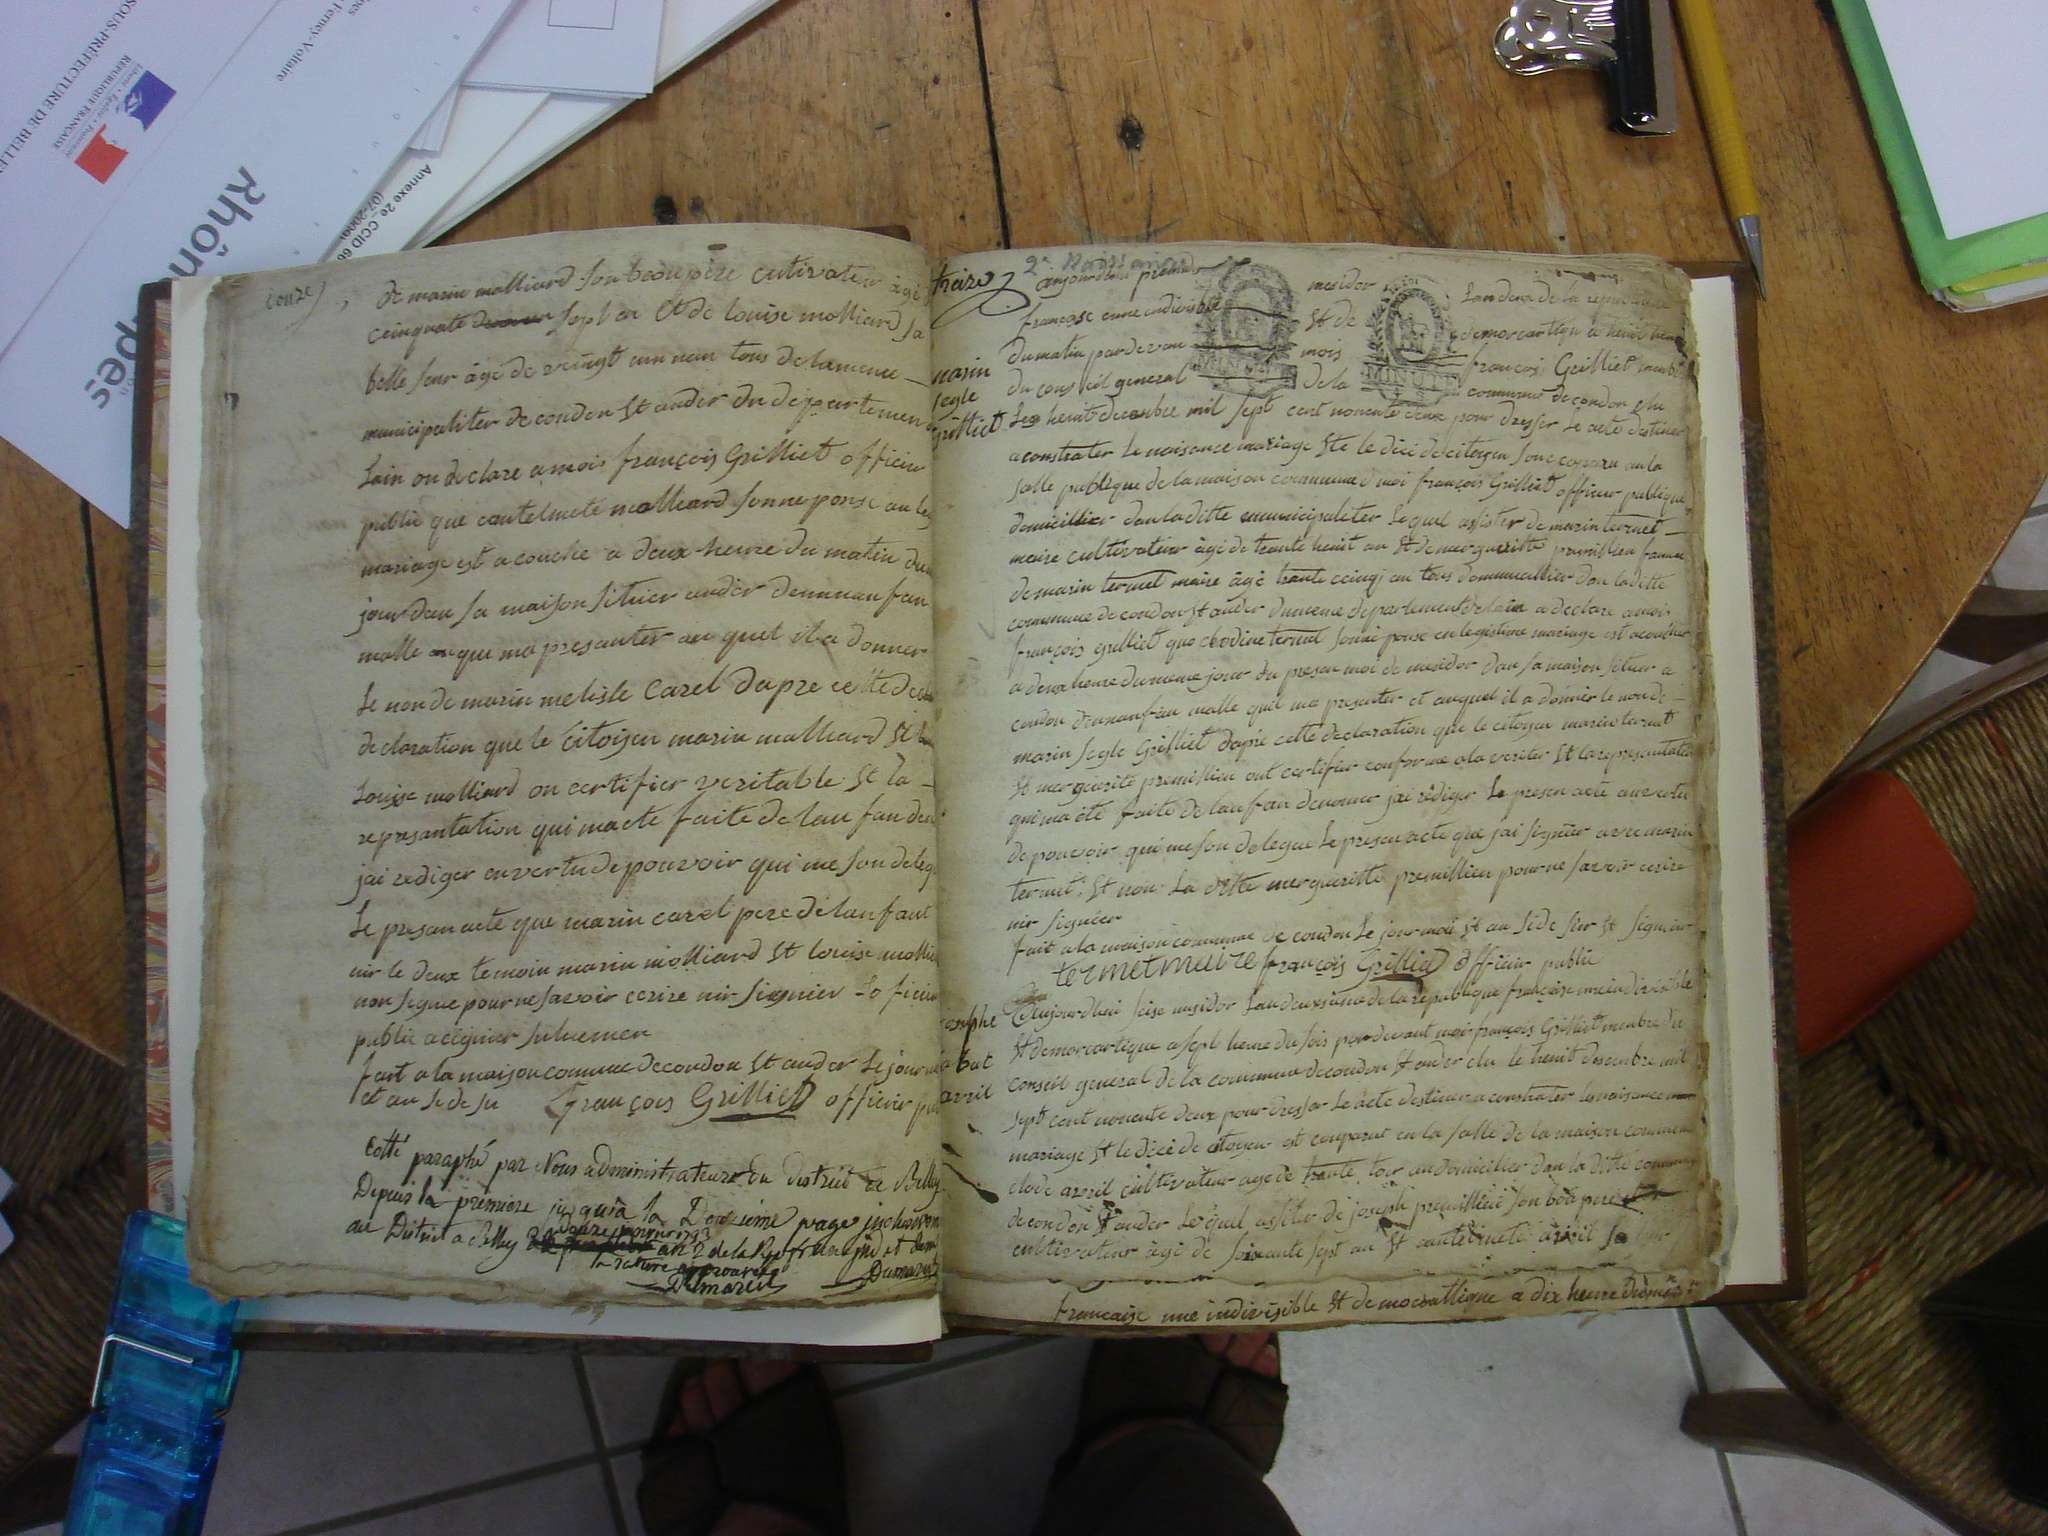 SOUS-PREFECTURE DE BELLE
Ferney-Voltaire
Liberté • Égalité • Fraternité
RÉPUBLIQUE FRANÇAISE
Rhône
Alpes
Annexe 2e CCID 66
(07-2000)
onze
de marin molliard son beau pere cutivateur agé
ceinquate sept en et de louise molliard sa
belle seur âgé de veingt un nan tous de la meme
municipaliter de condon St ander du departemen
Lain on declare a mois françois Grilliet officier
public que cantelmete molliard sonne ponse an leg
mariage est acouche a deux heure du matin du
jour dan sa maison sitüer ander dennan fan
malle que ma presanter au quel il a donner
Le non de marin melisle Carel dapre cette
declaration que le Citoijen marin malliard St
Louise molliard on certifier veritable St la
represantation qui ma ete faite de lan fan
jai rediger en vertu de pouvoir qui me son deleg
Le presan acte que marin carel pere de lanfant
nir le deux temoin marin molliard St louise mollia
non signe pour ne savoir ecrire nir signier Lo ficier
public a cignier suluemen
fait a la maison commue de condon St ander Le jour
et an se de su François Grilliet officier pub
Cotté paraphé par Nous administrateurs du district de Belley
Depuis la premiere jusqu'a la Douzieme page
au District a Belley an 2 de la Rep
la rature approuvée
Dumarest Dumarest
treize
2e
aujourdhui premier mesidor Landeux de la republique
francose eune indivisible St de demorcartique a heuit heure
du matin par devan mois françois Grilliet menbre
du conseil general de la commune de condon elu
MINUTE
marin
segle
Grilliet
Le heuit decenbre mil sept cent nonente deux pour dresser Le acte destiner
a constrater Le naisance mariage St le dice de citoyen
salle publique de la maison commune moi françois Grilliet officier publique
domicillier dan la ditte municipaleter Lequel assister de marin ternet
maire cultivateur âgé de trante heuit an St de mergueritte premillieu famme
de marin ternet maire âgé trante ceinq an tous dommicillier dan la ditte
commune de condon St ander du meme departement de lain a declare a mois
françois grilliet que clodine ternet sonne ponse en legistime mariage est acoucher
a deux heure du meme jour du presan moi de mesidor dan sa maison sitüer a
condon dennanfan malle quil ma presenter et auquel il a donner le non de
marin segle Grilliet dapre cette declaration que le citoyen marin ternet
St merguerite premillieu ont certifier conforme a la veriter St la represantation
qui ma ete faite de lanfan denomer jai rediger Le presen acte
de pouvoir qui me son delegue Le presen acte que jai signier avec marin
ternet St non La ditte merguerite premillieu pour ne savoir ecrire
nir signier
fait a la maison commune de condon Le jour moi St an side sur St signier
ternet maire françois Grilliet officier public
josephe
abut
avril
Aujourdhui seise mesidor Landeuxieme de la republique françoise une indivisible
St demorcartique a sept heure du sois par devant moi françois Grilliet menbre du
conseil general de la commune de condon St ander elu le heuit desenbre mil
sept cent nonente deux pour dresser Le acte destiner a constrater Le naisance
mariage St le dice de citoyen est conparut en la salle de la maison commune
clode avril cultivateur age de trante troi an domicilier dan la ditte commune
de condon St ander Lequel assiter de joseph premillieu son bau pere
cultivateur âgé de soixante sept an St avril sa
francaise une indivisible St de mocratique a dix heure